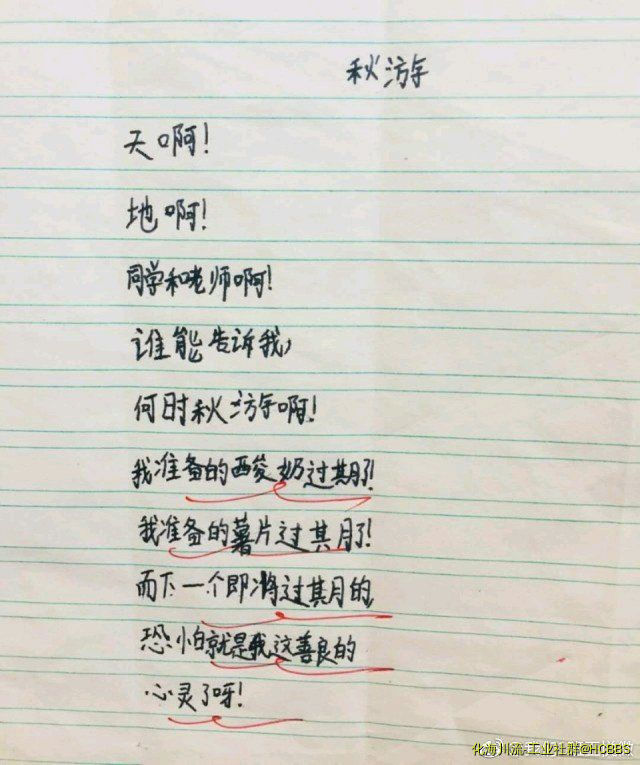 秋游
天啊！
地啊！
同学和老师啊！
谁能告诉我，
何时秋游啊！
我准备的酸奶过期了！
我准备的薯片过期了！
而下一个即将过期的，
恐怕就是我这善良的
心灵了呀！
化海川流-工业社群@HCBBS